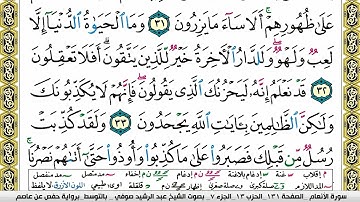 عَلَىٰ ظُهُورِهِمْ أَلَا سَآءَ مَا يَزِرُونَ ٣١ وَمَا ٱلْحَيَوٰةُ ٱلدُّنْيَآ إِلَّا
لَعِبٌ وَلَهْوٌ وَلَلدَّارُ ٱلْءَاخِرَةُ خَيْرٌ لِّلَّذِينَ يَتَّقُونَ أَفَلَا تَعْقِلُونَ
٣٢ قَدْ نَعْلَمُ إِنَّهُۥ لَيَحْزُنُكَ ٱلَّذِى يَقُولُونَ فَإِنَّهُمْ لَا يُكَذِّبُونَكَ
وَلَٰكِنَّ ٱلظَّٰلِمِينَ بِـَٔايَٰتِ ٱللَّهِ يَجْحَدُونَ ٣٣ وَلَقَدْ كُذِّبَتْ
رُسُلٌ مِّن قَبْلِكَ فَصَبَرُوا۟ عَلَىٰ مَا كُذِّبُوا۟ وَأُوذُوا۟ حَتَّىٰٓ أَتَىٰهُمْ نَصْرُنَا
سورة الأنعام الصفحة ١٣١ الحزب ١٣ الجزء ٧ بصوت الشيخ عبد الرشيد صوفي - بالتوسط برواية حفص عن عاصم